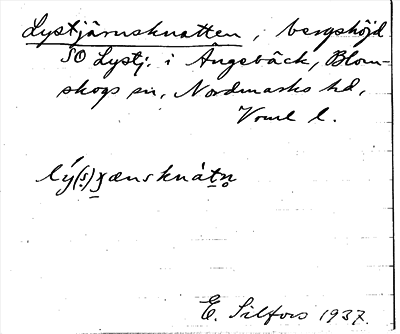 Lystjärnsknatten, bergshöjd
SO Lystj. i Ängebäck, Blom-
skogs sn, Nordmarks hd,
Vrml l.
lý(s)χænsknàtn̥
E. Silfors 1937.